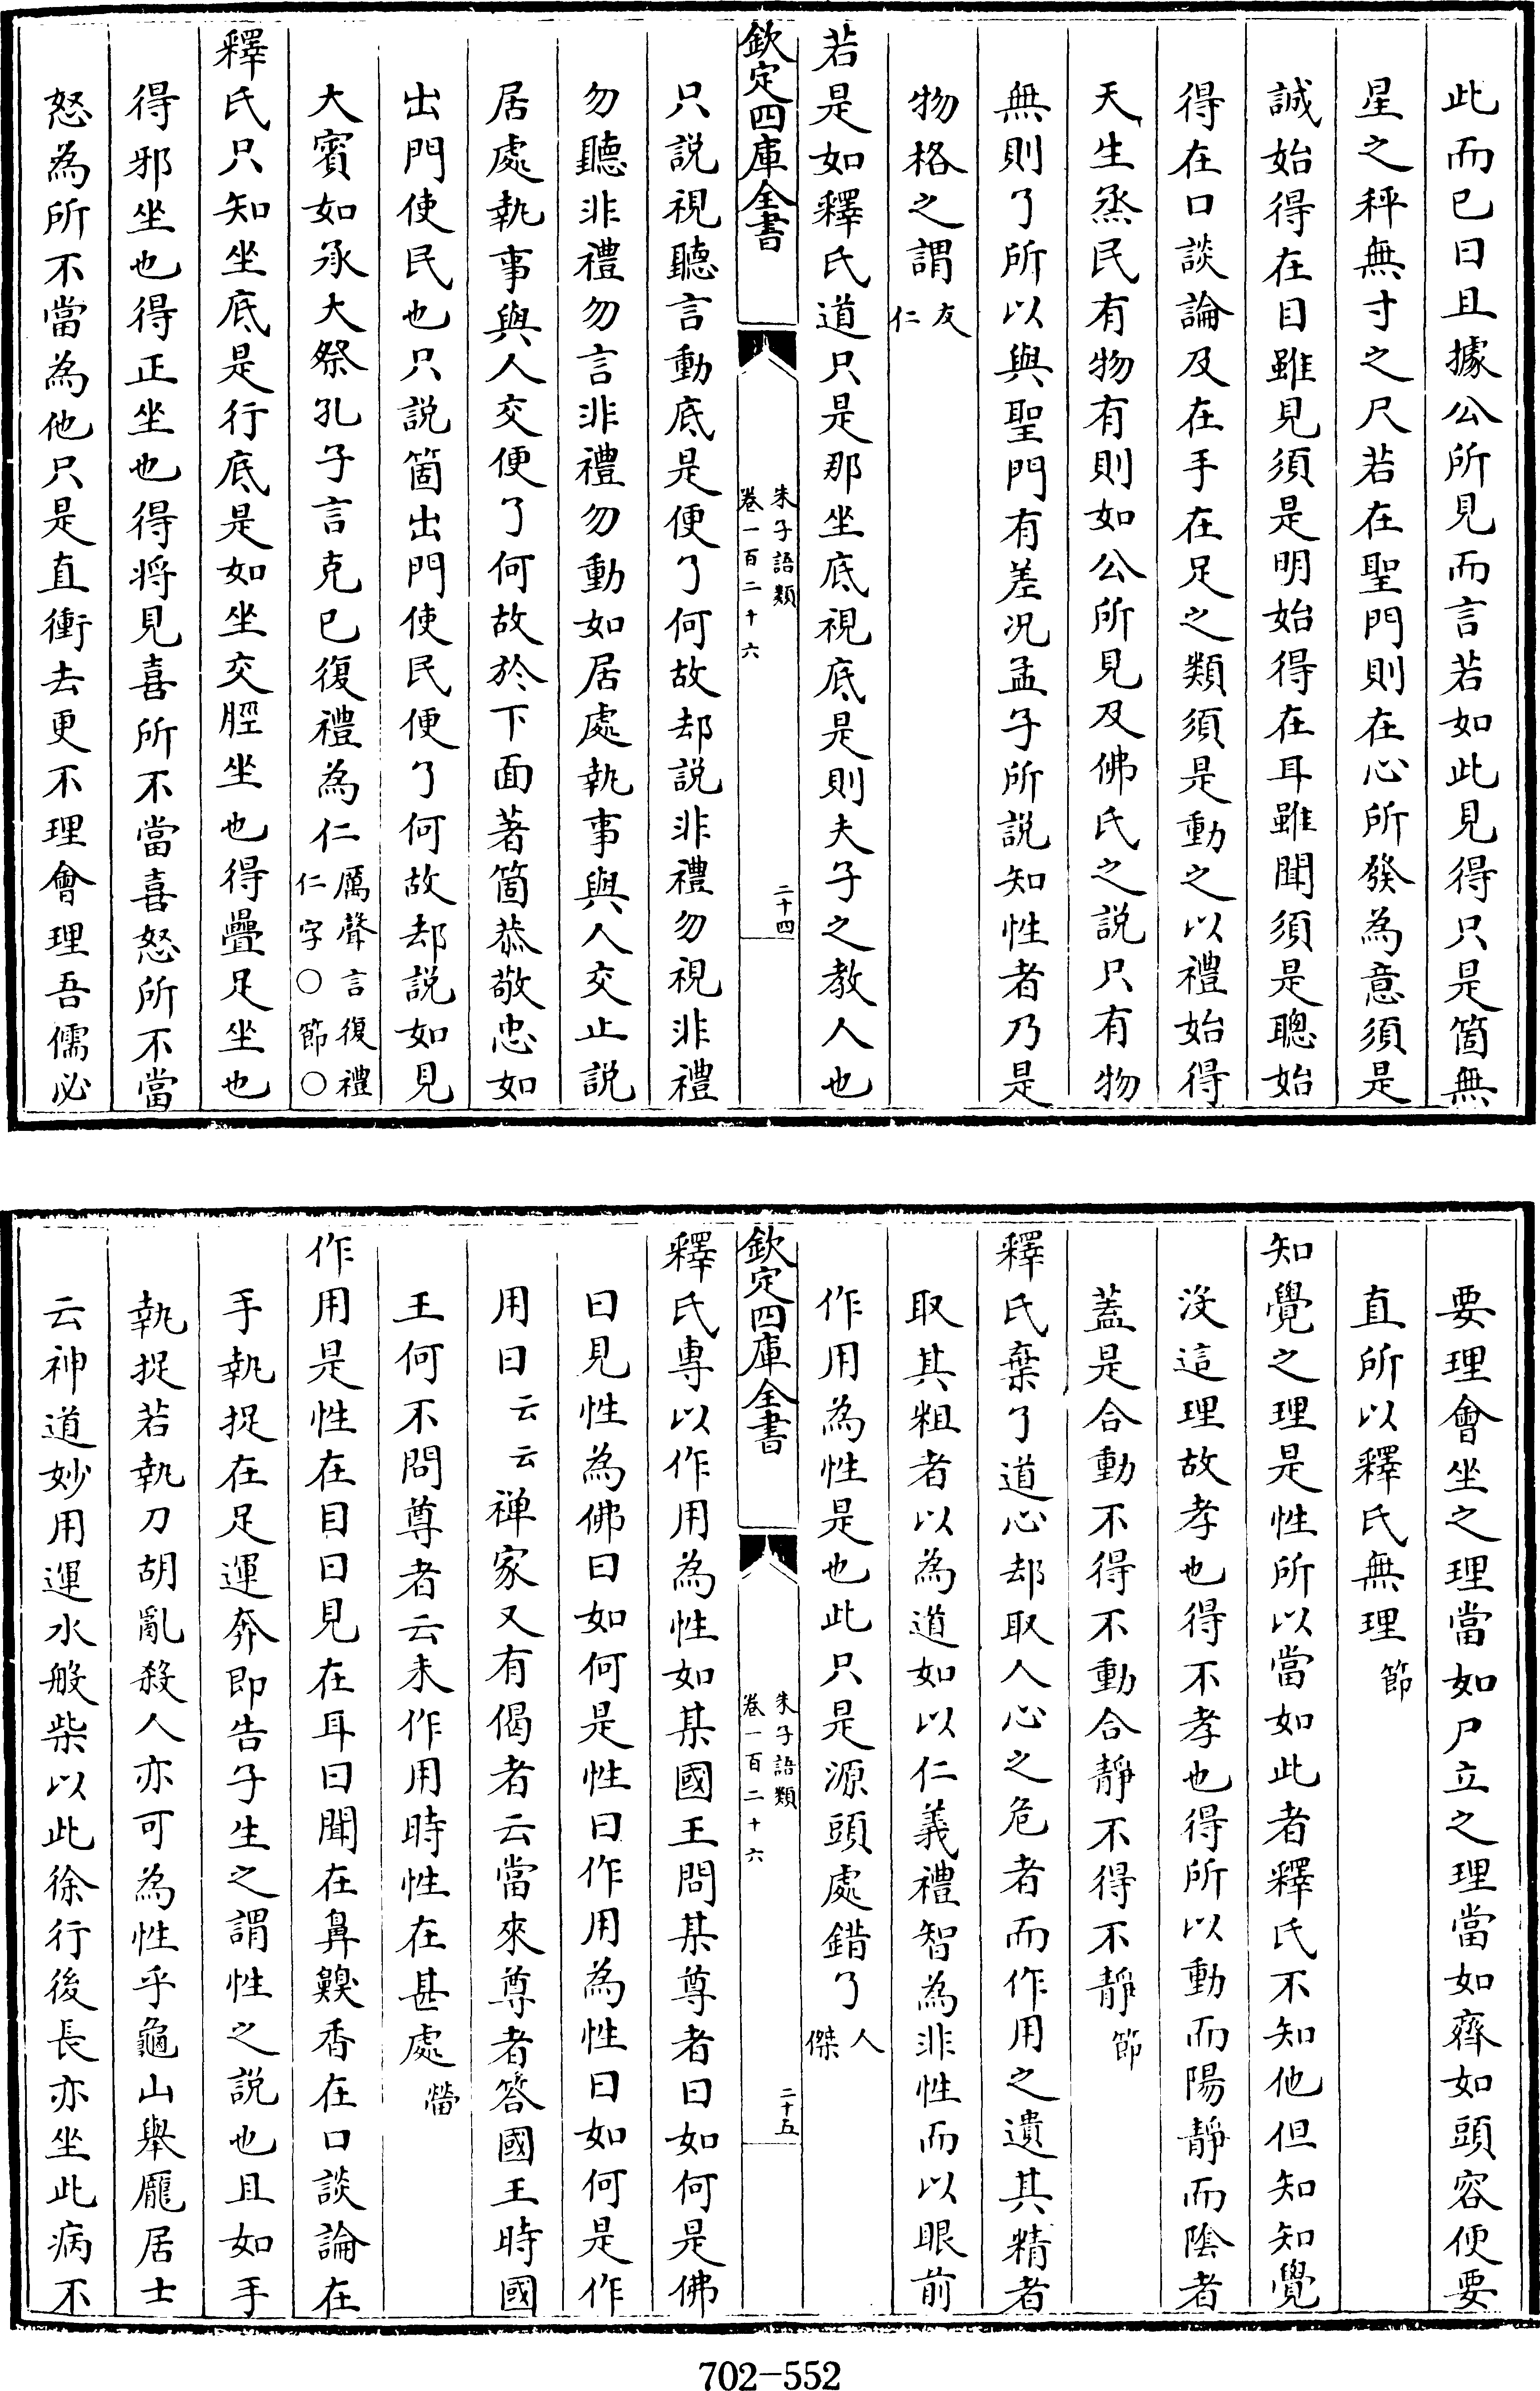 此而已曰且據公所見而言若如此見得只是箇無
星之秤無寸之尺若在聖門則在心所發為意須是
誠始得在目雖見須是明始得在耳雖聞須是聰始
得在口談論及在手在足之類須是動之以禮始得
天生烝民有物有則如公所見及佛氏之説只有物
無則了所以與聖門有差况孟子所説知性者乃是
物格之謂友仁
若是如釋氏道只是那坐底視底是則夫子之教人也
欽定四庫全書
朱子語類
卷一百二十六
二十四
只説視聽言動底是便了何故却説非禮勿視非禮
勿聽非禮勿言非禮勿動如居處執事與人交止説
居處執事與人交便了何故於下面著箇恭敬忠如
出門使民也只説箇出門使民便了何故却説如見
大賓如承大祭孔子言克已復禮為仁厲聲言復禮仁字○節○
釋氏只知坐底是行底是如坐交脛坐也得疊足坐也
得邪坐也得正坐也得将見喜所不當喜怒所不當
怒為所不當為他只是直衝去更不理會理吾儒必
要理會坐之理當如尸立之理當如齊如頭容便要
直所以釋氏無理節
知覺之理是性所以當如此者釋氏不知他但知知覺
沒這理故孝也得不孝也得所以動而陽靜而陰者
蓋是合動不得不動合靜不得不靜節
釋氏棄了道心却取人心之危者而作用之遺其精者
取其粗者以為道如以仁義禮智為非性而以眼前
作用為性是也此只是源頭處錯了人傑
欽定四庫全書
朱子語類
卷一百二十六
二十五
釋氏專以作用為性如某國王問某尊者曰如何是佛
曰見性為佛曰如何是性曰作用為性曰如何是作
用曰云云禅家又有偈者云當來尊者答國王時國
王何不問尊者云未作用時性在甚處㽦
作用是性在目曰見在耳曰聞在鼻齅香在口談論在
手執捉在足運奔即告子生之謂性之説也且如手
執捉若執刀胡亂殺人亦可為性乎龜山舉龐居士
云神道妙用運水般柴以此徐行後長亦坐此病不
702-552